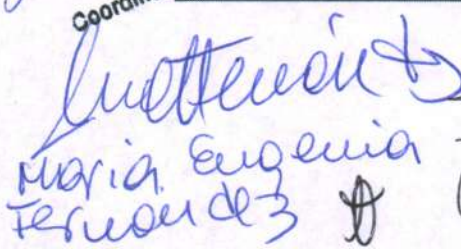 Coordin
María Eugenia
Fernández